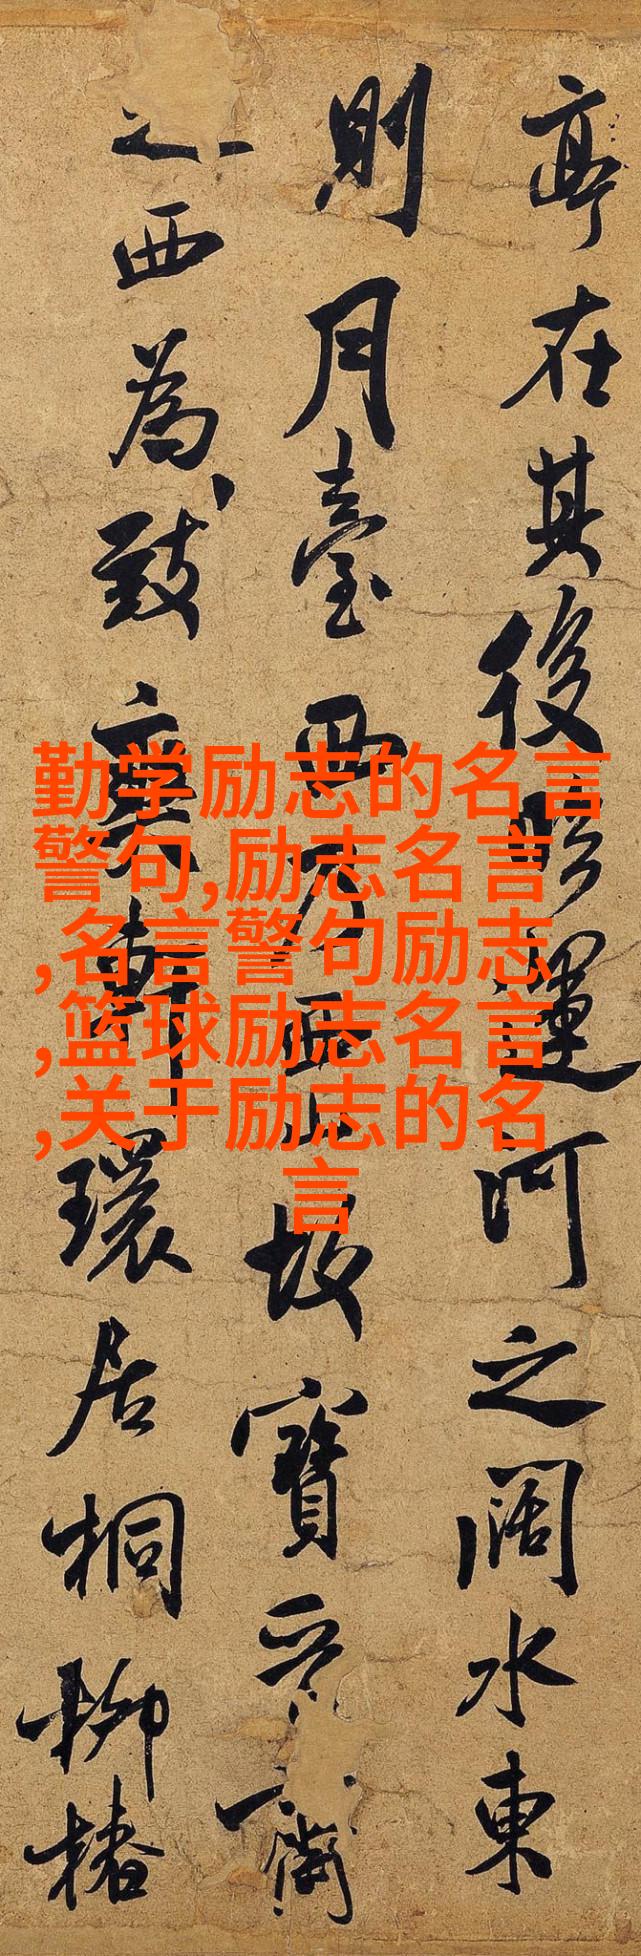 亭在其後臨運河之闊水東
則月臺西乃西山墩寶晉齋
之西為致爽軒環居桐柳椿
勤学励志的名言
警句,励志名言
,名言警句励志
,篮球励志名言
,关于励志的名
言